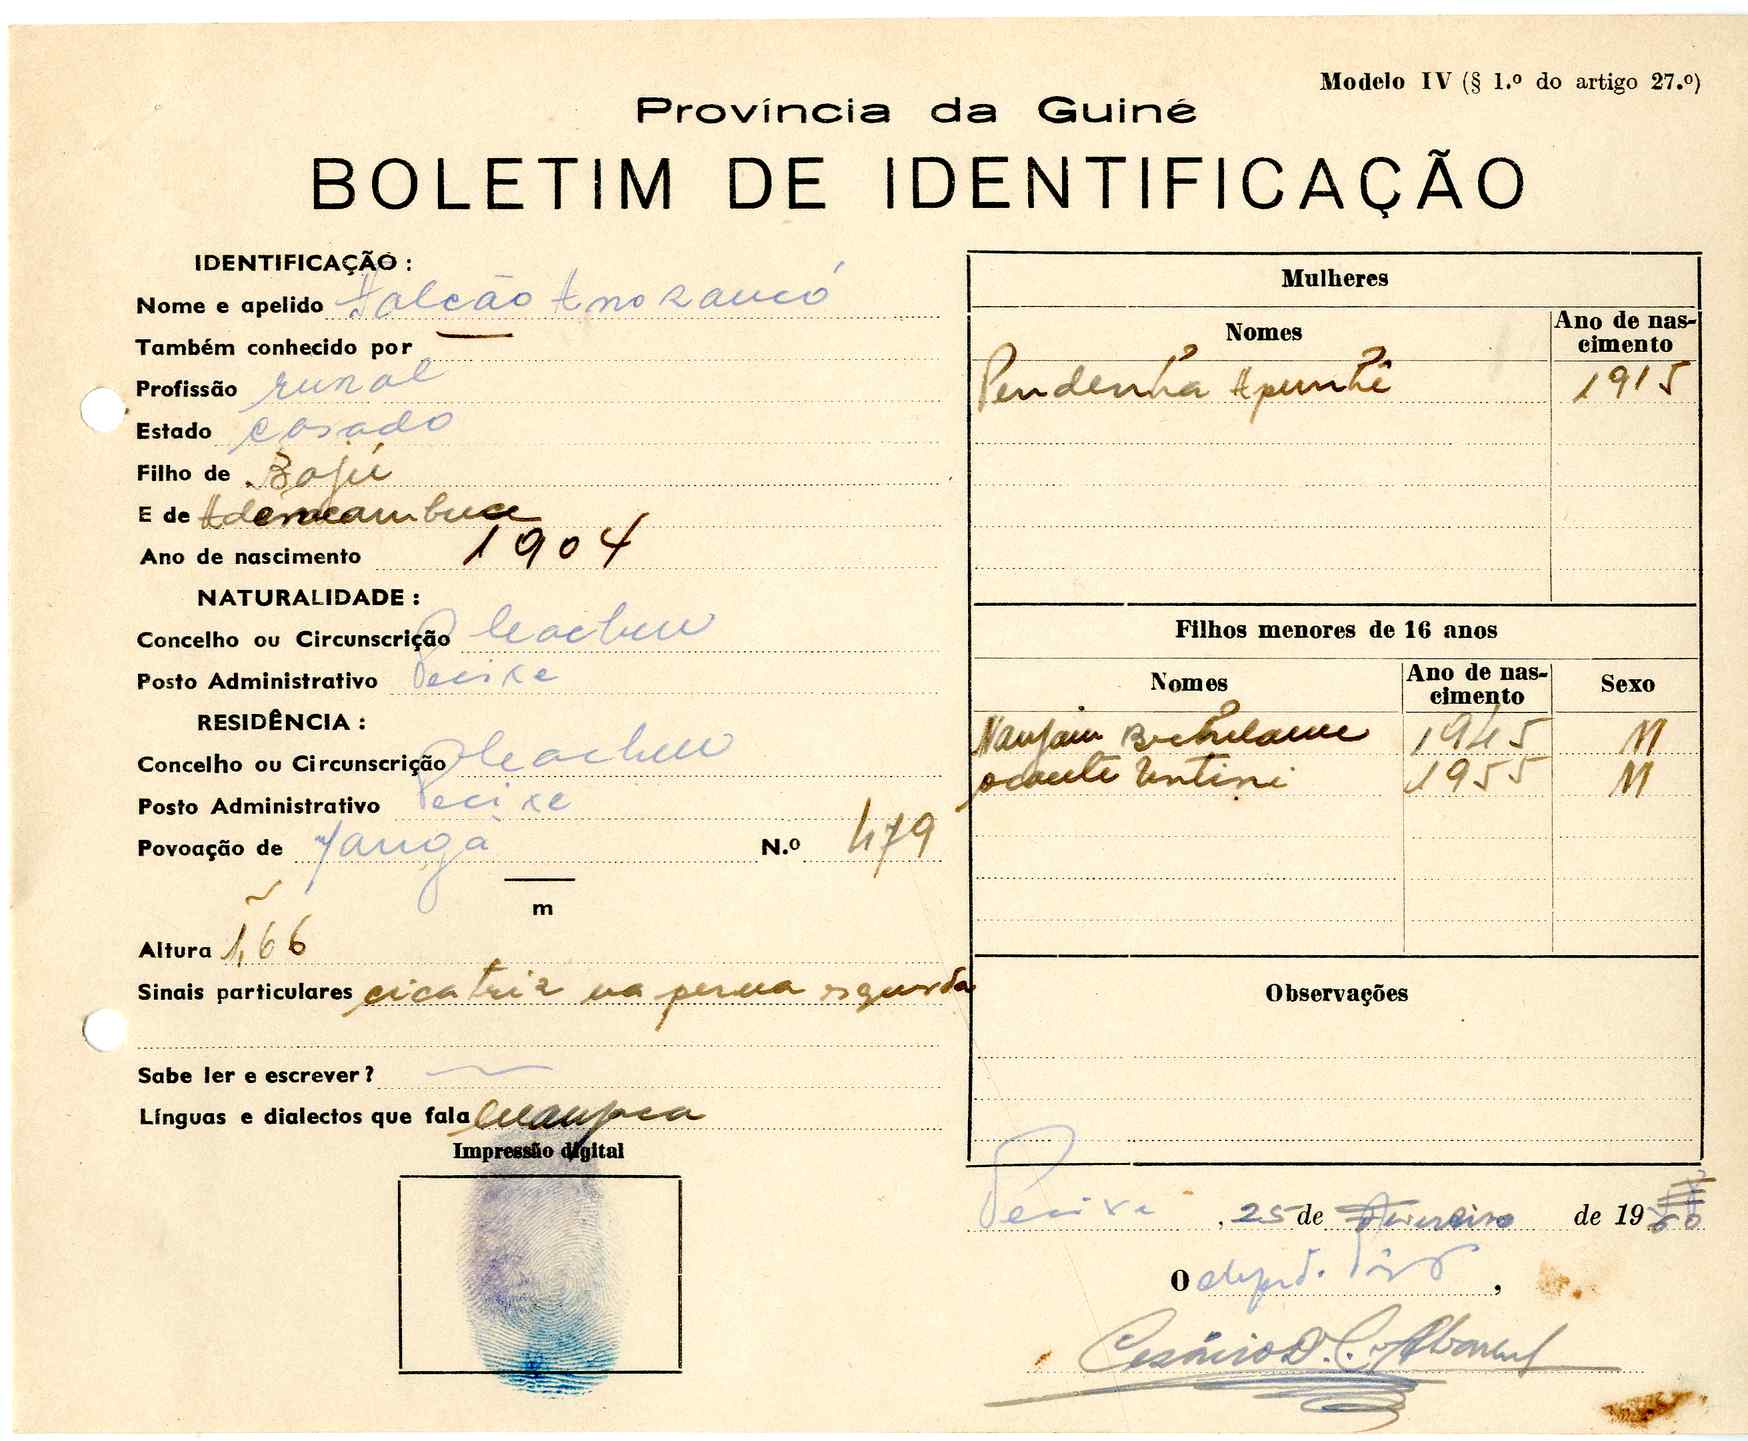 Modelo IV (§ 1.º do artigo 27.º)
Província da Guiné
BOLETIM DE IDENTIFICAÇÃO
IDENTIFICAÇÃO :
Nome e apelido Falcão
Também conhecido por
Profissão rural
Estado casado
Filho de Bajú
E de
Ano de nascimento 1904
NATURALIDADE :
Concelho ou Circunscrição Cacheu
Posto Administrativo Pecixe
RESIDÊNCIA :
Concelho ou Circunscrição Cacheu
Posto Administrativo Pecixe
Povoação de N.º 479
m
Altura 1,66
Sinais particulares cicatriz na perna esquerda
Sabe ler e escrever?
Línguas e dialectos que fala
Impressão digital
Mulheres
Nomes Ano de nascimento
1915
Filhos menores de 16 anos
Nomes Ano de nascimento Sexo
1945 M
1955 M
Observações
Pecixe, 25 de Fevereiro de 1960
O